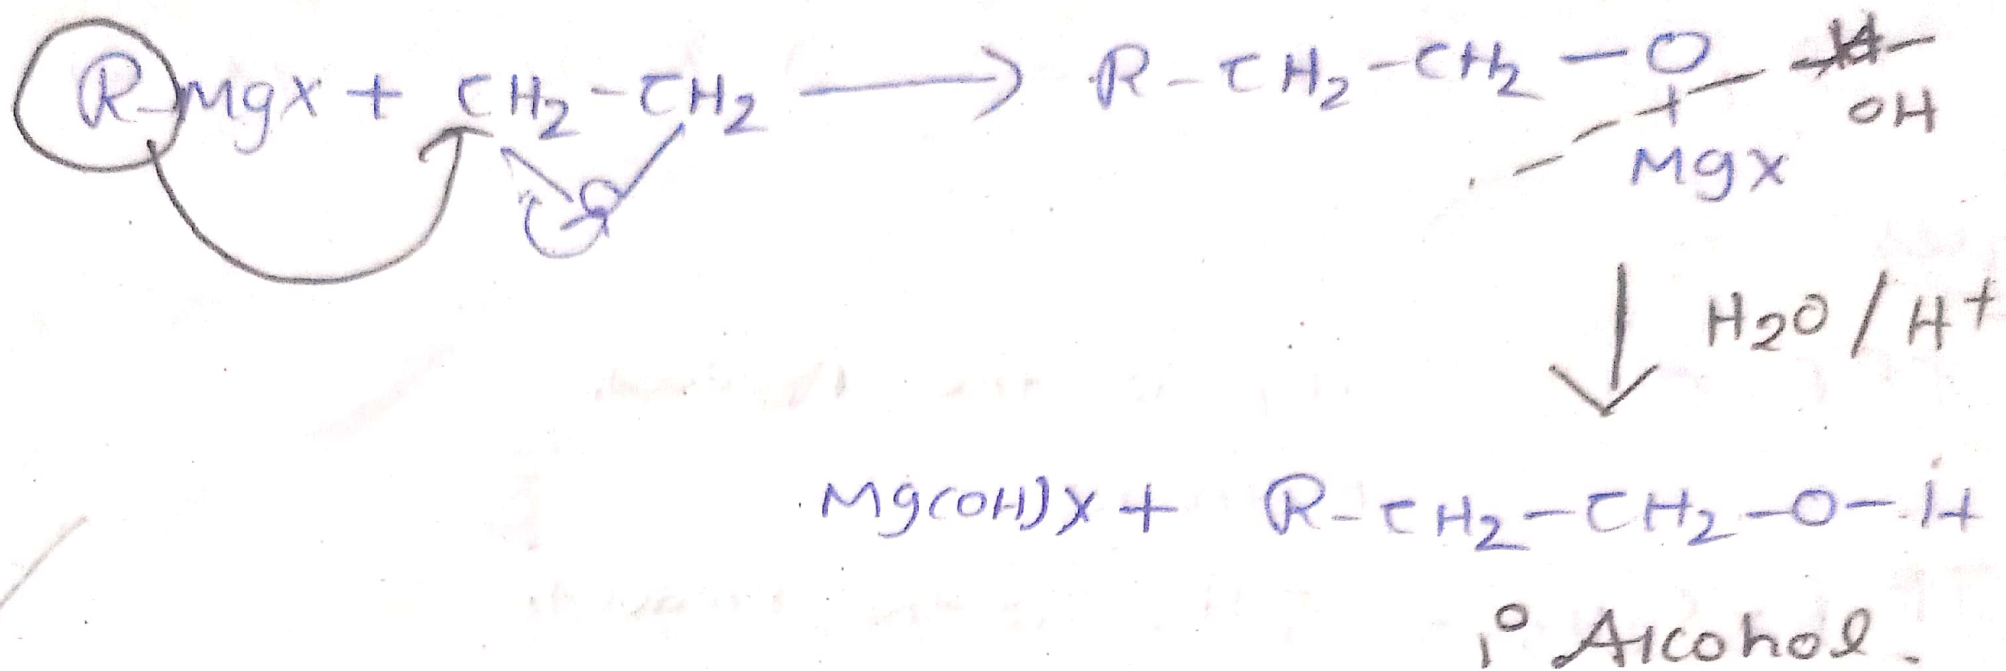 R-MgX + CH₂-CH₂ ⟶ R-CH₂-CH₂-O H
O OH
MgX
H₂O / H⁺
Mg(OH)X + R-CH₂-CH₂-O-H
1° Alcohol.